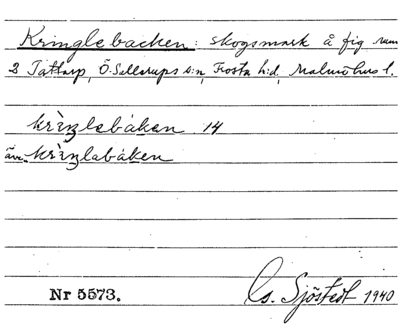 Kringlebacken: skogsmark å fig rum
2 Tåttarp, Ö. Sallerups s:n, Frosta h:d, Malmöhus l.
krìŋlebáken 14
äv. krìŋlabáken
Nr 5573.
Gs. Sjöstedt 1940